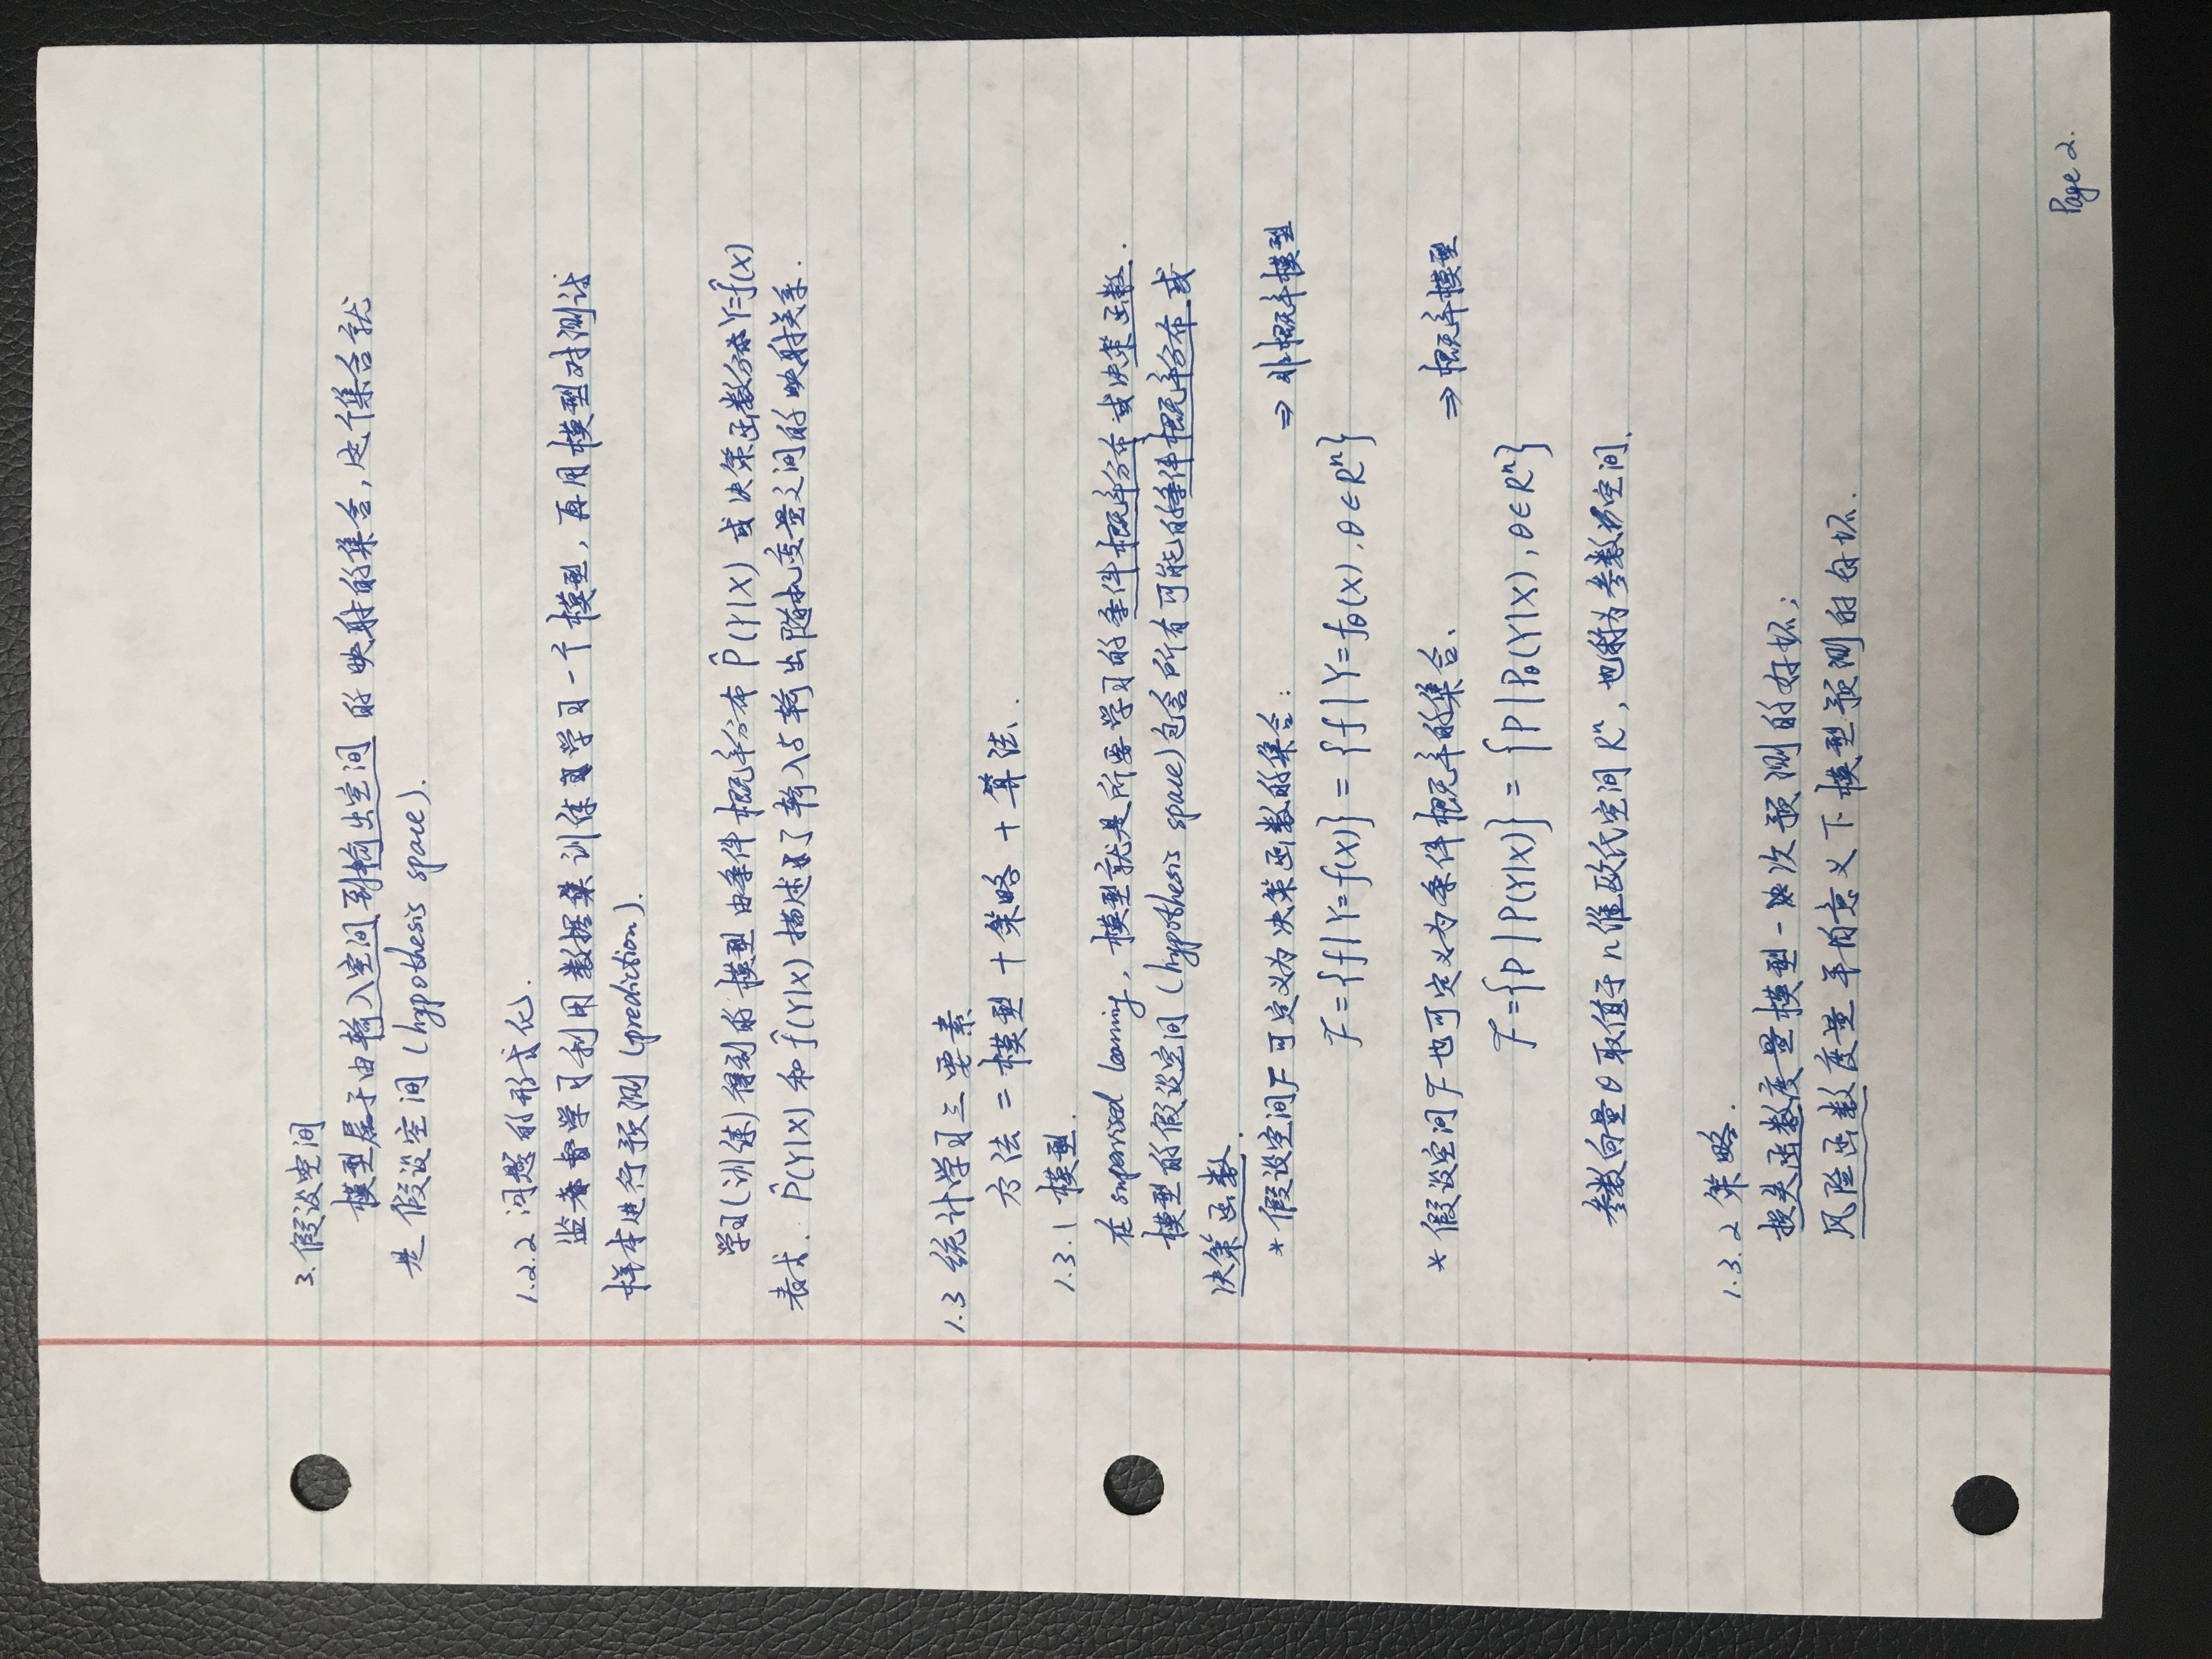 3. 假设空间
模型属于由输入空间到输出空间的映射的集合,这个集合就
是假设空间 (hypothesis space).
1.2.2 问题的形式化.
监督学习利用数据集训练学习一个模型,再用模型对测试
样本进行预测 (prediction).
学习(训练)得到的模型由条件概率分布 P̂(Y|X) 或决策函数 Y=f̂(X)
表示. P̂(Y|X) 和 f̂(Y|X) 描述了输入与输出随机变量之间的映射关系.
1.3 统计学习三要素
方法 = 模型 + 策略 + 算法.
1.3.1 模型.
在 supervised learning, 模型就是所要学习的条件概率分布或决策函数.
模型的假设空间 (hypothesis space) 包含所有可能的条件概率分布或
决策函数.
* 假设空间 F 可定义为决策函数的集合: ⇒ 非概率模型
F = {f | Y=f(X)} = {f | Y=fθ(X), θ∈Rⁿ}
* 假设空间 F 也可定义为条件概率的集合. ⇒ 概率模型
F = {P | P(Y|X)} = {P | Pθ(Y|X), θ∈Rⁿ}
参数向量 θ 取值于 n 维欧氏空间 Rⁿ, 也称为参数空间.
1.3.2 策略.
损失函数度量模型一次预测的好坏;
风险函数度量平均意义下模型预测的好坏.
Page 2.